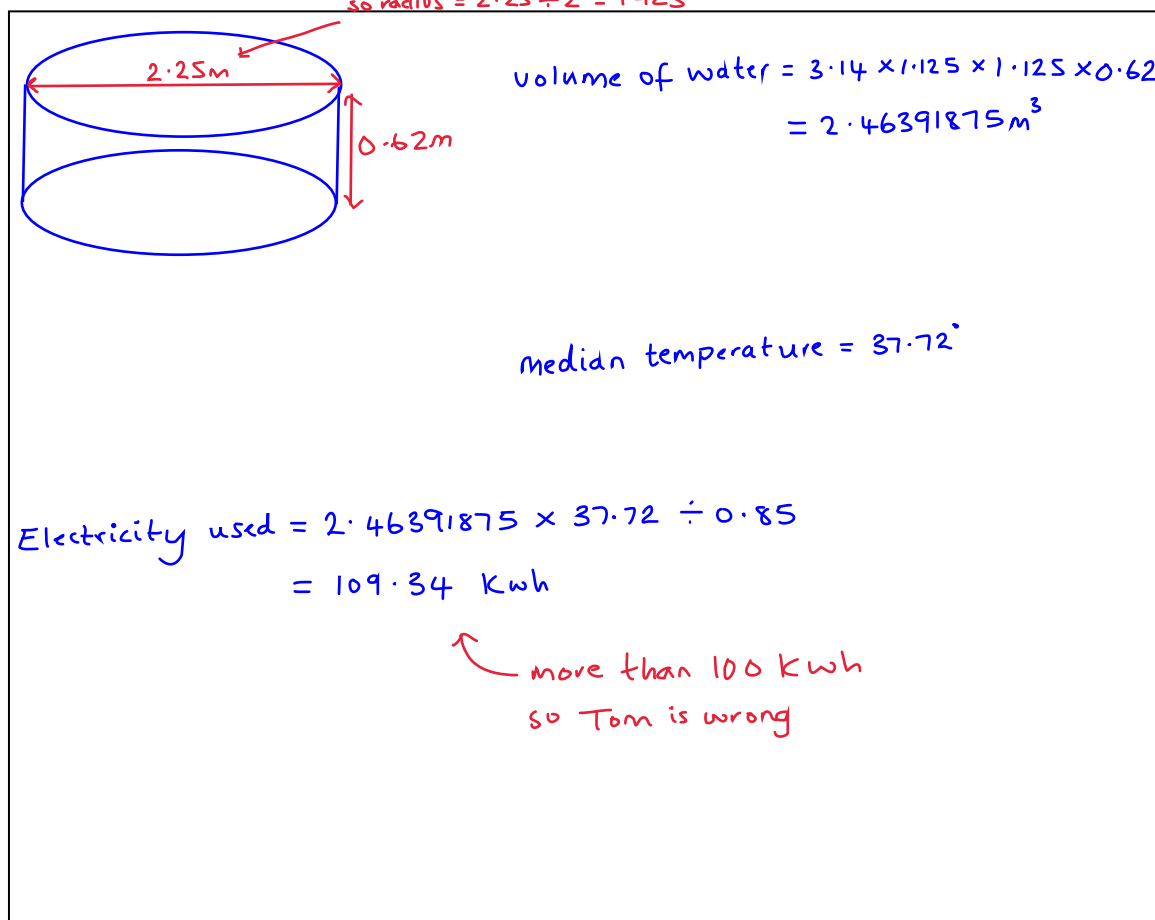 so radius = 2.25 ÷ 2 = 1.125
2.25m
volume of water = 3.14 × 1.125 × 1.125 × 0.62
= 2.46391875 m³
0.62m
median temperature = 37.72°
Electricity used = 2.46391875 × 37.72 ÷ 0.85
= 109.34 Kwh
more than 100 Kwh
so Tom is wrong